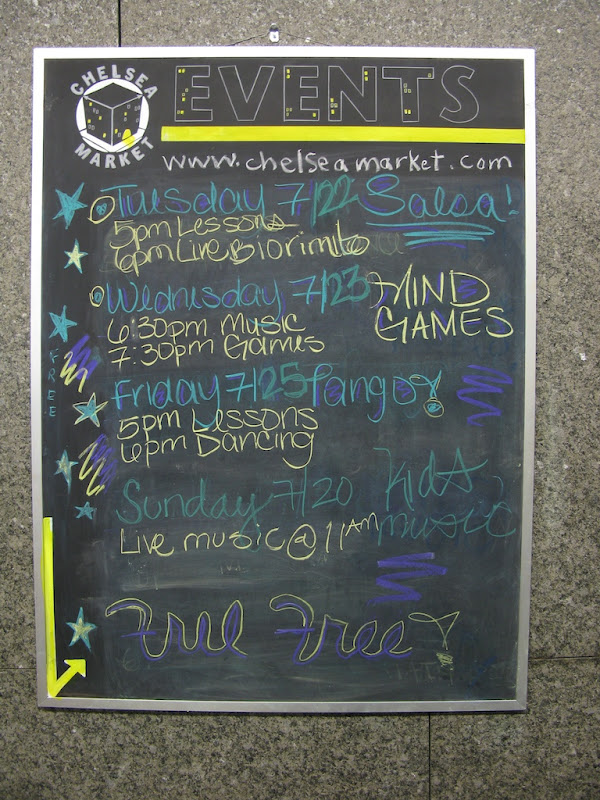 CHELSEA MARKET
EVENTS
www.chelseamarket.com
Tuesday 7/22 Salsa!
5pm Lessons
6pm Live Biorimbo
Wednesday 7/23 MIND GAMES
6:30pm Music
7:30pm Games
FREE
Friday 7/25 Tango!
5pm Lessons
6pm Dancing
Sunday 7/20 Kids music
Live music @ 11AM
Free Free!